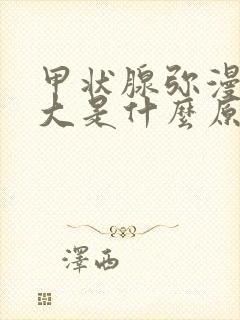 甲状腺弥漫
大是什麼原
澤西